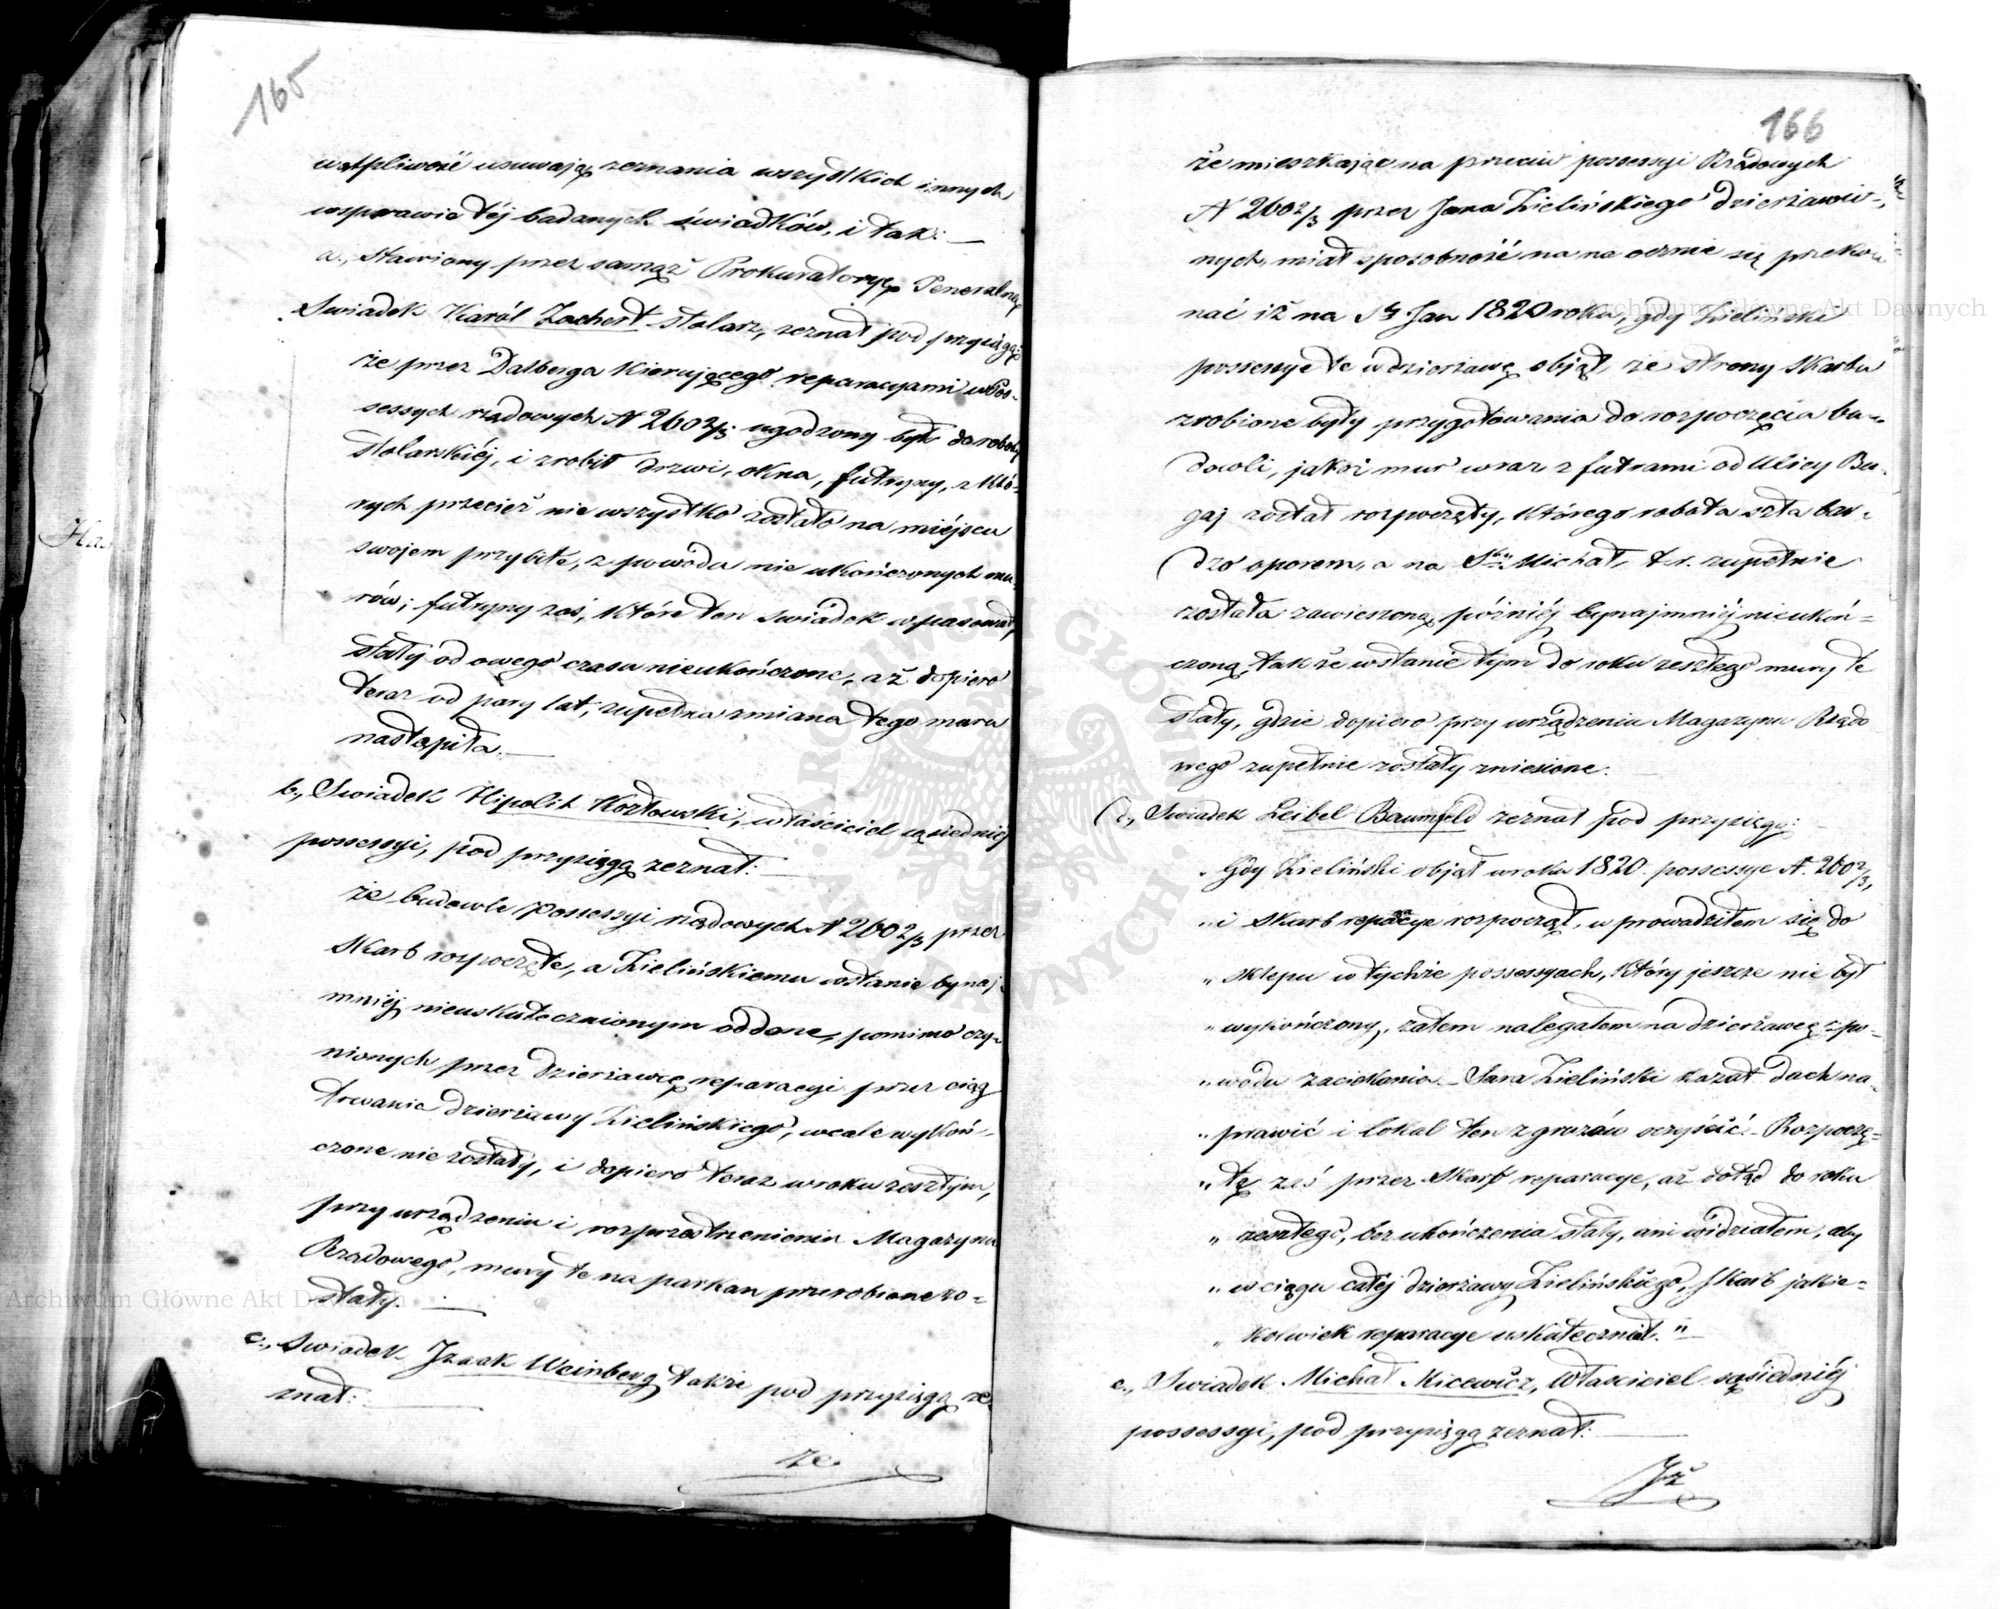 165
wątpliwość usuwają zeznania wszystkich innych
wsprawie téj badanych świadków, i tak: —
a., Stawiony przez samąż Prokuratoryę Generalną
Swiadek Karól Zachert stolarz, zeznał pod przysięgą:
że przez Dalberga kierującego reparacyami w Pos-
sessych rządowych N 2602/3 ugodzony był do roboty
stolarskiéj, i zrobił drzwi, okna, futryny, z któ-
rych przecież nie wszystko zostało na miéjscu
swojem przybite, z powodu nie ukończonych mu
rów; futryny zaś, które ten swiadek wpasował,
stały od owego czasu nieukończone, aż dopiero
teraz od pary lat, zupełna zmiana tego muru
nastąpiła. —
b., Swiadek Hipolit Kozłowski, właściciel sąsiedniéj
possessyi, pod przysięgą zeznał: —
że budowle Possessyi rządowych N 2602/3 przez
Skarb rozpoczęte, a Zielińskiemu wstanie bynaj-
mniéj nieuskutecznionym oddane, pomimo czy-
nionych przez dzierżawcę reparacyi przez ciąg
trwania dzierżawy Zielińskiego, wcale wykoń-
czone nie zostały, i dopiero teraz w roku zeszłym,
przy urządzeniu i rozprzestrzenieniu Magazynu
Rządowego, mury te na parkan przerobione zo-
stały. —
c., Swiadek Izaak Weinberg także pod przysięgą ze
znał: —
że
166
że mieszkając na przeciw possessyi Rządowych
N 2602/3 przez Jana Zielińskiego dzierżawio-
nych, miał sposobność na na ocznie się przeko
nać iż na St Jan 1820 roku, gdy Zieliński
possessye te w dzierżawę objął, ze strony Skarbu
zrobione były przygotowania do rozpoczęcia bu-
dowli, jakoż mur wraz z futrami od Ulicy Bu-
gaj został rozpoczęty, którego robota szła bar-
dzo oporem, a na Sty Michał, t. r. zupełnie
została zawieszoną, późniéj bynajmniéj nieukoń-
czoną, tak że wstanie tym do roku zeszłego mury te
stały, gdzie dopiero przy urządzeniu Magazynu Rządo
wego zupełnie zostały zniesione. —
d., Swiadek Leibel Baumfeld zeznał pod przysięgą: —
„ Gdy Zieliński objął w roku 1820 possessye N. 2602/3,
„ i Skarb reparacye rozpoczął, wprowadziłem się do
„ sklepu w tychże possessyach, który jeszcze nie był
„ wykończony, zatem nalegałem na dzierżawcę z po-
„ wodu zaciekania – Jana Zieliński kazał dach na-
„ prawić i lokal ten z gruzów oczyścić. – Rozpoczę-
„ te zaś przez Skarb reparacye, aż dotąd do roku
„ zeszłego, bez ukończenia stały, ani widziałem, aby
„ w ciągu całéj dzierżawy Zielińskiego, Skarb jakie-
„ kolwiek reparacye uskutecznił." —
e., Swiadek Michał Micewicz, właściciel sąsiedniéj
possessyi, pod przysięgą zeznał: —
Iż
Archiwum Główne Akt Dawnych
Archiwum Główne Akt Dawnych
ARCHIWUM GŁÓWNE AKT DAWNYCH